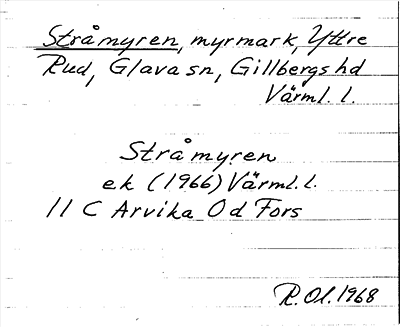 Stråmyren, myrmark, Yttre
Rud, Glava sn, Gillbergs hd
Värml. l.
Stråmyren
ek (1966) Värml. l.
11 C Arvika Od Fors
R. Ol. 1968